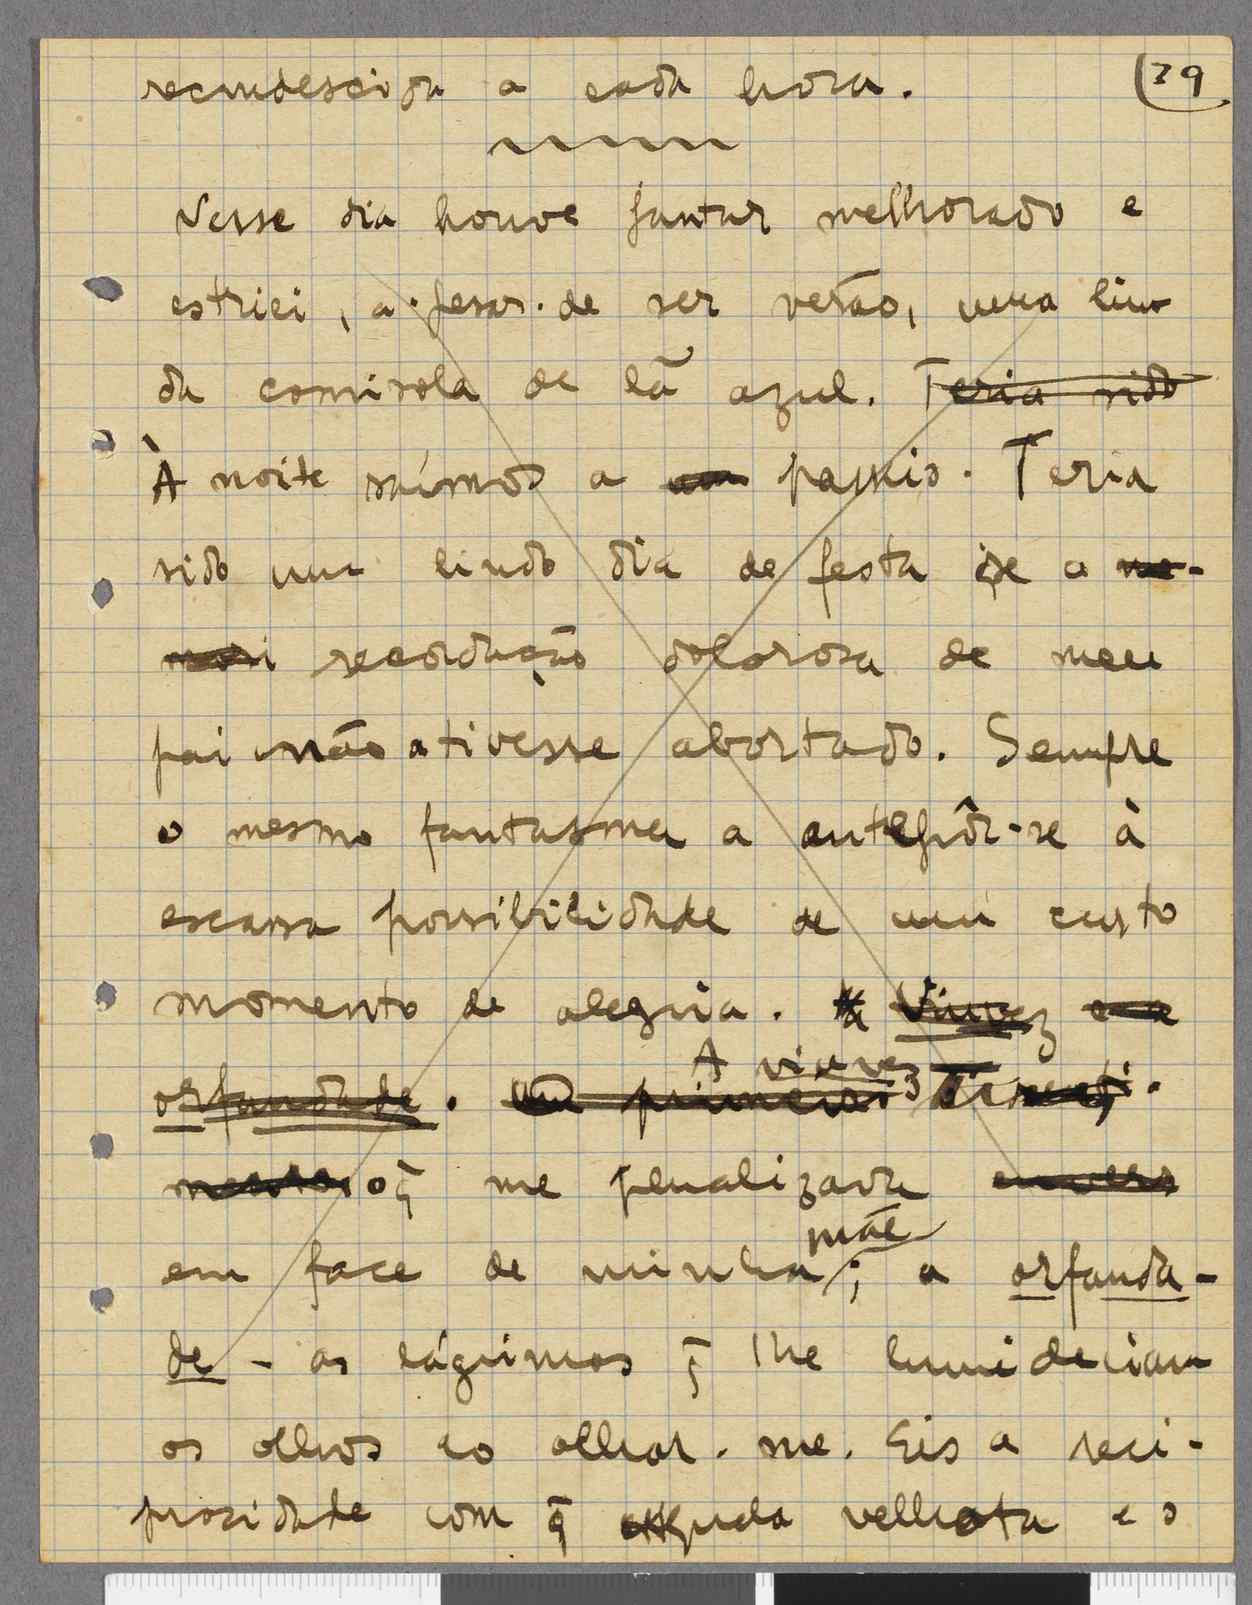 recrudescida a cada hora. 29
Nesse dia houve jantar melhorado e
estriei, a-pesar-de ser verão, uma lin
da camisola de lã azul. Teria sido
À noite saímos a um passeio. Teria
sido um lindo dia de festa se a me-
mori recordação dolorosa de meu
pai não ativesse abortado. Sempre
o mesmo fantasma a antepôr-se à
escassa possibilidade de um curto
momento de alegria. Viuvez e a
orfandade. Um primeiro
A viuvez
q̄ me penalizava
em face de minha mãe; a orfanda-
de - as lágrimas q̄ lhe humideciam
os olhos ao olhar-me. Eis a reci-
procidade com q̄ aquela velhota e o